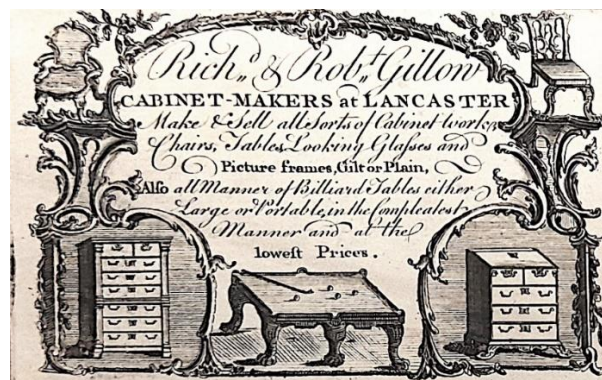 Rich.d & Rob.t Gillow
CABINET-MAKERS at LANCASTER
Make & Sell all sorts of Cabinet work,
Chairs, Tables, Looking Glaſses and
Picture frames, Gilt or Plain,
Also all Manner of Billiard Tables either
Large or Portable, in the Compleatest
Manner and at the
lowest Prices.